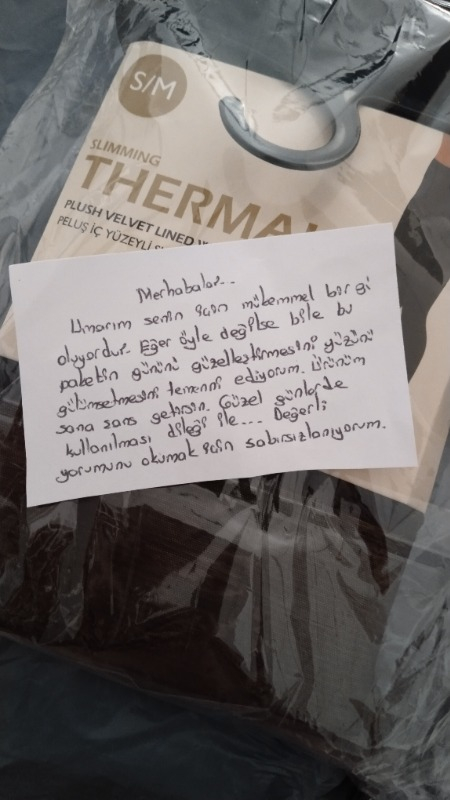 S/M
SLIMMING
THERMAL
PLUSH VELVET LINED
PELUŞ İÇ YÜZEYLİ
Merhabalar...
Umarım senin için mükemmel bir gü
oluyordur. Eğer öyle değilse bile bu
paketin gününü güzelleştirmesini yüzünü
gülümsetmesini temenni ediyorum. Ürünüm
sana şans getirsin. Güzel günlerde
kullanılması dileği ile... Değerli
yorumunu okumak için sabırsızlanıyorum.